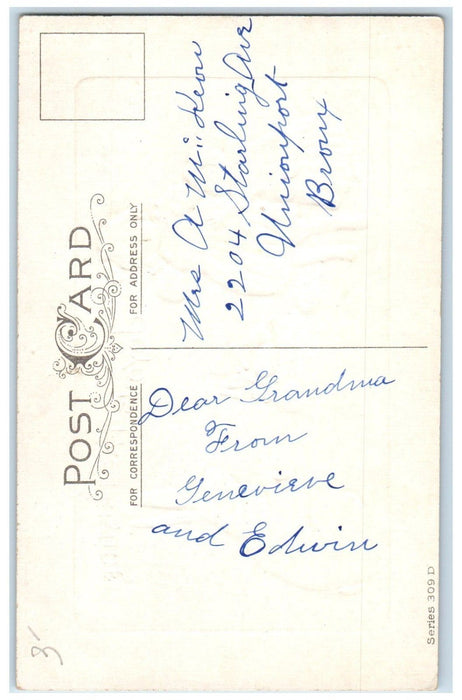 POST CARD
FOR CORRESPONDENCE
FOR ADDRESS ONLY
Dear Grandma
From
Genevieve
and Edwin
Mrs A McKeon
2204 Starling Ave
Unionport
Bronx
Series 309 D
3-